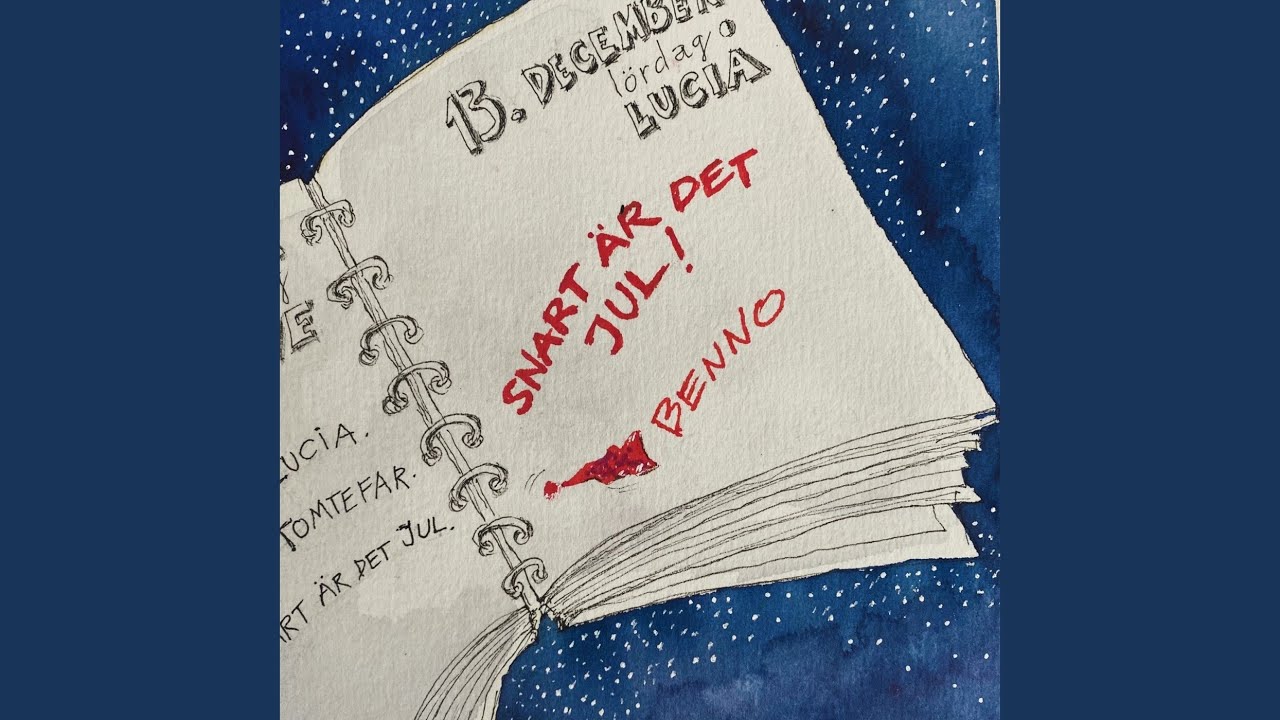 13. DECEMBER
lördag
LUCIA
SNART ÄR DET
JUL!
BENNO
LUCIA.
TOMTEFAR.
ART ÄR DET JUL.